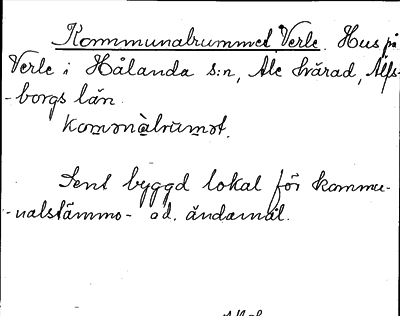 Kommunalrummet Verle. Hus på
Verle i Hålanda s:n, Ale härad, Älfs-
-borgs län.
komonàlrumət.
Sent byggd lokal för kommu-
-nalstämmo- od. ändamål.